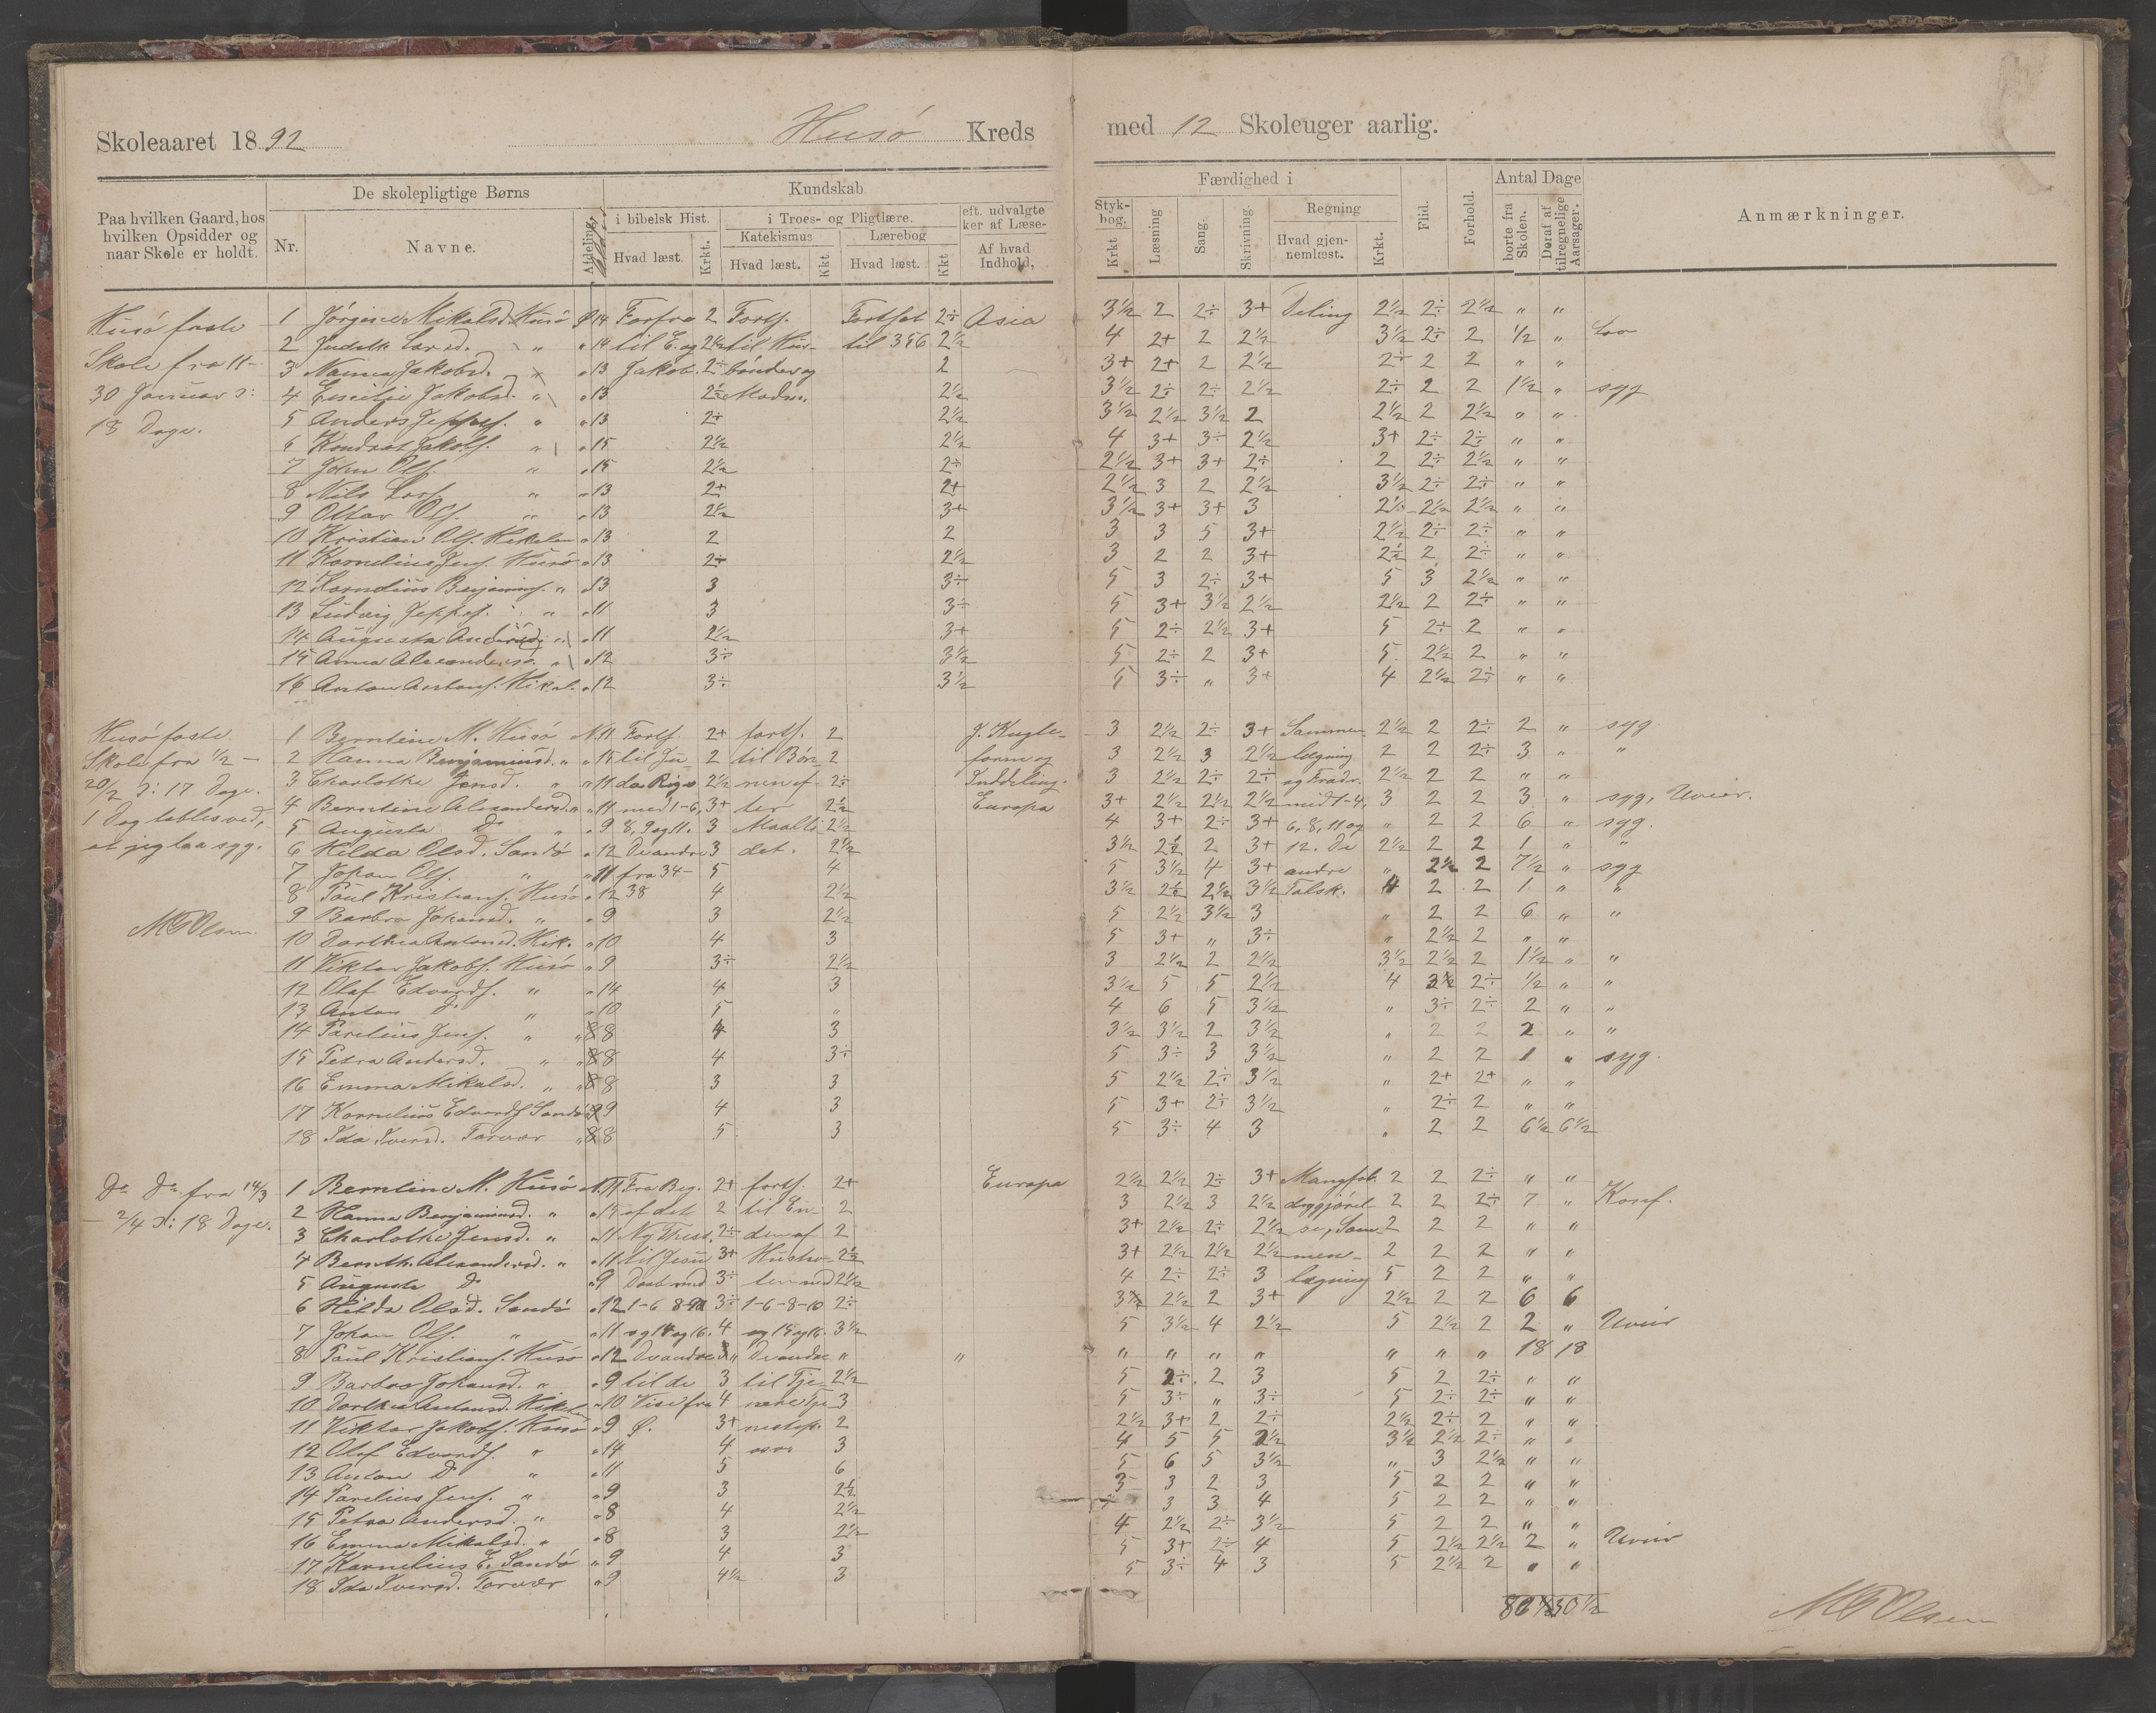 Skoleaaret 1892 Husö Kreds med 12 Skoleuger aarlig.
Paa hvilken Gaard, hos hvilken Opsidder og naar Skole er holdt.
De skolepligtige Børns
Nr. Navne.
Afdeling.
Kundskab
i bibelsk Hist.
Hvad læst. Krkt.
i Troes- og Pligtlære.
Katekismus Lærebog
Hvad læst. Kkt. Hvad læst. Kkt
eft. udvalgte
ker af Læse-
Af hvad Indhold,
Færdighed i
Styk-bog. Krkt
Læsning
Sang.
Skrivning.
Regning
Hvad gjen-nemlæst. Krkt.
Flid.
Forhold.
Antal Dage
borte fra Skolen.
Deraf af tilregnelige Aarsager.
Anmærkninger.
Husö faste
Skole fra 11-
30 Januar ɔ:
18 Dage.
1 Jörgine Mikalsd. Husö 14 Forfra 2 Forts. Fortsat 2÷ Asia 3½ 2 2÷ 3+ Deling 2½ 2÷ 2½ " "
2 " " 14 til E. og 2½ til Hus- til 356 2½ 4 2+ 2 2½ 3½ 2÷ 2 ½ "
3 Nanna Jakobsd. " " 13 Jakob. 2÷ bönder og 2 3+ 2+ 2 2½ 2÷ 2 2 " "
4 Emilie Jakobsd. " " 13 2½ 2½ 3½ 2÷ 2÷ 2½ 2÷ 2 2 1½ " syg
5 Anders Jeppes. " " 13 2÷ 2½ 3½ 2½ 3½ 2 2½ 2 2½ " "
6 Kondrat Jakobs. " " 15 2½ 2½ 4 3+ 3÷ 2½ 3+ 2÷ 2÷ " "
7 Johan Ols. " " 15 2½ 2÷ 2½ 3+ 3+ 2÷ 2 2÷ 2½ " "
8 Nils Lars. " " 13 2+ 2+ 2½ 3 2 2½ 3½ 2÷ 2÷ " "
9 Ottar Ols. " " 13 2½ 3+ 3½ 3+ 3+ 3 2½ 2½ 2½ " "
10 Kristian Ols. " 13 2 2 3 3 5 3+ 2½ 2÷ 2÷ " "
11 Kornelius Jens. Husö " 13 2÷ 2½ 3 2 2 3+ 2½ 2 2÷ " "
12 Kornelius Benjamins. " " 13 3 3÷ 5 3 2÷ 3+ 5 3 2½ " "
13 Ludvig Jeppes. " " 11 3 3÷ 5 3+ 3½ 2½ 2½ 2 2÷ " "
14 Augusta " " 11 2½ 3+ 5 2÷ 2½ 3+ 5 2÷ 2 " "
15 Anna Alexandersd. " " 12 3÷ 3½ 5 2÷ 2 3+ 5 2½ 2 " "
16 Anton Antons. " 12 3÷ 3½ 5 3÷ " 3+ 4 2½ 2÷ " "
Husö faste
Skole fra ½ –
20/2 ɔ: 17 Dage.
1 Dag tabtes ved,
at jeg laa syg.
M Olsen.
1 Berntine M. Husö N. 11 Forts. 2+ forts. 2 J. Kugle- 3 2½ 2÷ 3+ Sammen- 2½ 2 2÷ 2 " syg
2 Hanna Benjaminsd. " " 15 til Ju- 2 til Bön- 2 forme og 3 2½ 3 2½ lægning 2 2 2÷ 3 " "
3 Charlotte Jensd. " " 11 da Rige 2½ nen ef- 2÷ Inddeling. 3 2½ 2÷ 2÷ og Fradr. 2½ 2 2 " "
4 Berntine Alexandersd. " " 11 med 1-6, 3+ ter 2½ Europa 3+ 2½ 2½ 2½ med 1-4, 3 2 2 3 " syg, Uveir.
5 Augusta Do " 9 8, 9 og 11. 3 Maalti- 2½ 4 3+ 2÷ 3+ 6, 8, 11 og " 2 2 6 " syg.
6 Hilda Olsd. Sandö " 12 De andre 3 det. 2½ 3½ 2½ 2 3+ 12. De 2½ 2 2 1 " "
7 Johan Ols. " " 11 fra 34- 5 4 5 3½ 4 3+ andre " 2½ 2 7½ " syg
8 Paul Kristians. Husö " 12 38 4 2½ 3½ 2½ 2½ 3½ Talsk. 4 2 2 1 " "
9 Barbro Johansd. " " 9 3 2½ 5 2½ 3½ 3 " 2 2 6 " "
10 Dorthea Antonsd. Hik. " 10 4 3 5 3+ " 3÷ " 2½ 2 " "
11 Viktor Jakobs. Husö " 9 3÷ 2½ 3 2½ 2 2½ 3½ 2½ 2 1½ " "
12 Olaf Edvards. " " 14 4 3 3½ 5 5 2½ 4 3½ 2÷ ½ " "
13 Anton Do " " 10 5 " 4 6 5 3½ " 3÷ 2÷ 2 " "
14 Parelius Jens. " " 8 4 3 3½ 3½ 2 3½ " 2 2 2 " "
15 Petra Andersd. " " 8 4 3÷ 5 3÷ 3 3½ " 2 2 1 " syg.
16 Emma Mikalsd. " " 8 3 3 5 2½ 2÷ 3½ " 2+ 2+ " "
17 Kornelius Edvards. Sandö 9 4 3 5 3+ 2÷ 3½ " 2÷ 2 " "
18 Ida Iversd. Torvær " 8 5 3 5 3÷ 4 3 " 2 2 6½ 6½
Do Do fra 14/3
– 2/4 ɔ: 18 Dage.
1 Berntine M. Husö N. 11 Fra Beg. 2+ forts. 2+ Europa 2½ 2½ 2÷ 3+ Mangfol- 2 2 2÷ " "
2 Hanna Benjaminsd. " " 15 af det 2 til En- 2 3 2½ 3 2½ diggjörel- 2 2 2÷ 7 " Konf.
3 Charlotte Jensd. " " 11 Ny Thest. 2÷ den af 2 3+ 2½ 2÷ 2½ se, Sam- 2 2 2 " "
4 Bernth. Alexandersd. " " 11 til Jesu 3+ Hustav- 2½ 3+ 2½ 2½ 2½ men- 2 2 2 " "
5 Augusta Do " 9 Daab med 3÷ len med 2½ 4 2÷ 2÷ 3 lægning 5 2 2 " "
6 Hilda Olsd. Sandö " 12 1-6 3÷ 1-6-8-10 2÷ 3½ 2½ 2 3+ 2½ 2 2 6 6
7 Johan Ols. " " 11 og 14 og 16. 4 og 15 og 16. 3½ 5 3½ 4 2½ 5 2½ 2 2 " Uveir
8 Paul Kristians. Husö " 12 De andre " De andre " " " " " " " " " 18 18
9 Barbro Johansd. " " 9 til de 3 til Tje- 2½ 5 2÷ 2 3 5 2 2÷ " "
10 Dorthea Antonsd. " 10 Vise fra 4 3 5 3÷ " 3÷ 5 2÷ 2÷ " "
11 Viktor Jakobs. Husö " 9 Ø. 3+ 2 2½ 3+ 2 2÷ 2½ 2÷ 2 " "
12 Olaf Edvards. " " 14 4 3 4 5 5 2½ 3½ 2½ 2÷ " "
13 Anton Do " " 11 5 6 5 6 5 3½ " 3 2½ " "
14 Parelius Jens. " " 9 3 2½ 3 2 3 5 2 2 " "
15 Petra Andersd. " " 8 4 2½ 3 3 4 5 2 2 " "
16 Emma Mikalsd. " " 8 3 2½ 4 2½ 2÷ 3½ 5 2 2 " "
17 Kornelius E. Sandö " 9 4 3 5 3+ 2÷ 4 5 2½ 2½ 2 " Uveir
18 Ida Iversd. Torvær " 9 4½ 3 5 3÷ 4 3 5 2½ 2 " "
30½
M Olsen